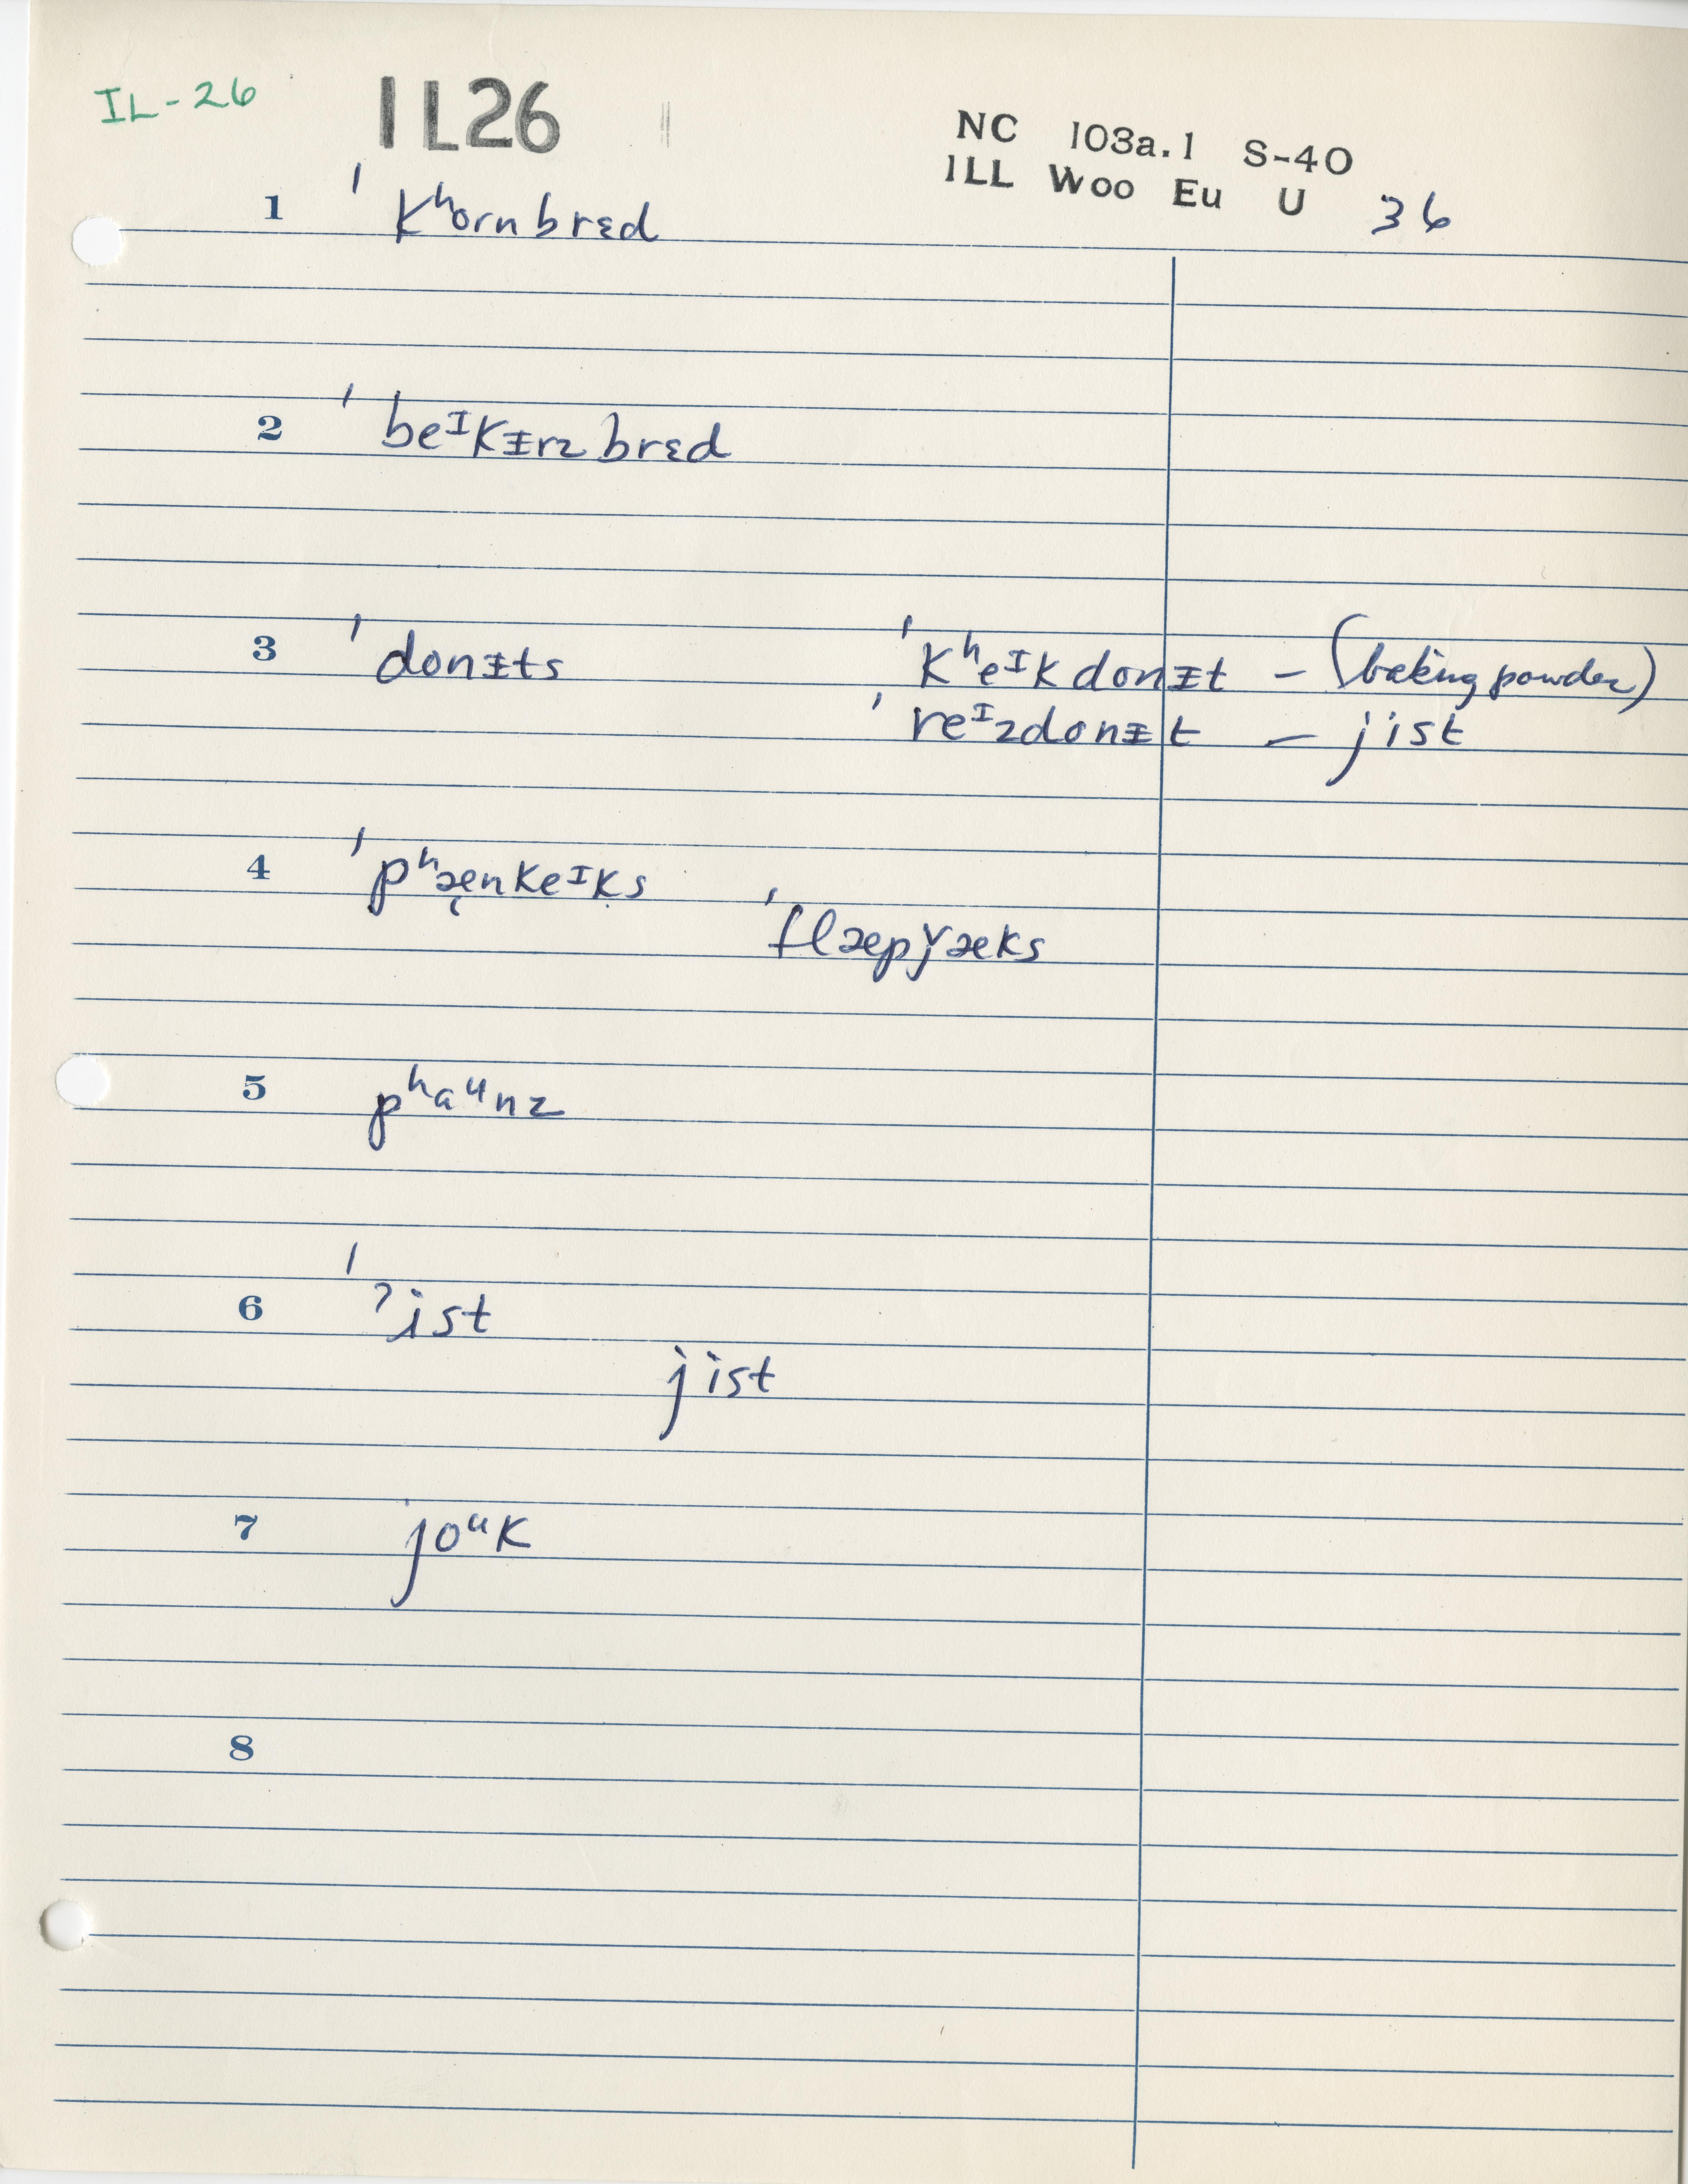 IL-26 IL26
NC 103a.1 S-40
ILL Woo Eu U 36
1 ˈkʰornbrɛd
2 ˈbeᶦkᵻrzbrɛd
3 ˈdonᵻts ˈkʰeᶦkdonᵻt – (baking powder)
ˈreᶦzdonᵻt – jist
4 ˈpʰæ̨nkeᶦks
ˈflæpǰæks
5 pʰaᵘnz
6 ˈʔist
jist
7 joᵘk
8